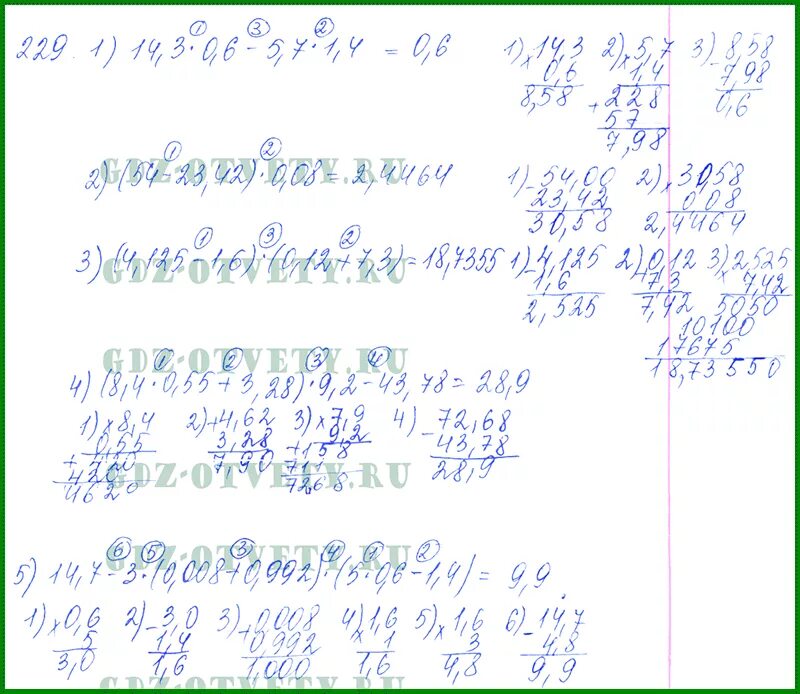 229. 1) 14,3 · 0,6 - 5,7 · 1,4 = 0,6
① ③ ②
1) 14,3
× 0,6
8,58
2) 5,7
× 1,4
+ 228
57
7,98
3) 8,58
- 7,98
0,6
GDZ-OTVETY.RU
2) (54 - 23,42) · 0,08 = 2,4464
① ②
1) 54,00
- 23,42
30,58
2) 30,58
× 0,08
2,4464
GDZ-OTVETY.RU
3) (4,125 - 1,6) · (0,12 + 7,3) = 18,7355
① ③ ②
1) 4,125
- 1,6
2,525
2) 0,12
+ 7,3
7,42
3) 2,525
× 7,42
5050
10100
17675
18,73550
GDZ-OTVETY.RU
4) (8,4 · 0,55 + 3,28) · 9,2 - 43,78 = 28,9
① ② ③ ④
1) × 8,4
0,55
+ 420
420
4620
2) + 4,62
3,28
7,90
3) × 7,9
9,2
+ 158
711
7268
4) 72,68
- 43,78
28,9
GDZ-OTVETY.RU
GDZ-OTVETY.RU
5) 14,7 - 3 · (0,008 + 0,992) · (5 · 0,6 - 1,4) = 9,9
⑥ ⑤ ③ ④ ① ②
1) × 0,6
5
3,0
2) - 3,0
1,4
1,6
3) + 0,008
0,992
1,000
4) 1,6
× 1
1,6
5) × 1,6
3
4,8
6) - 14,7
4,8
9,9
GDZ-OTVETY.RU